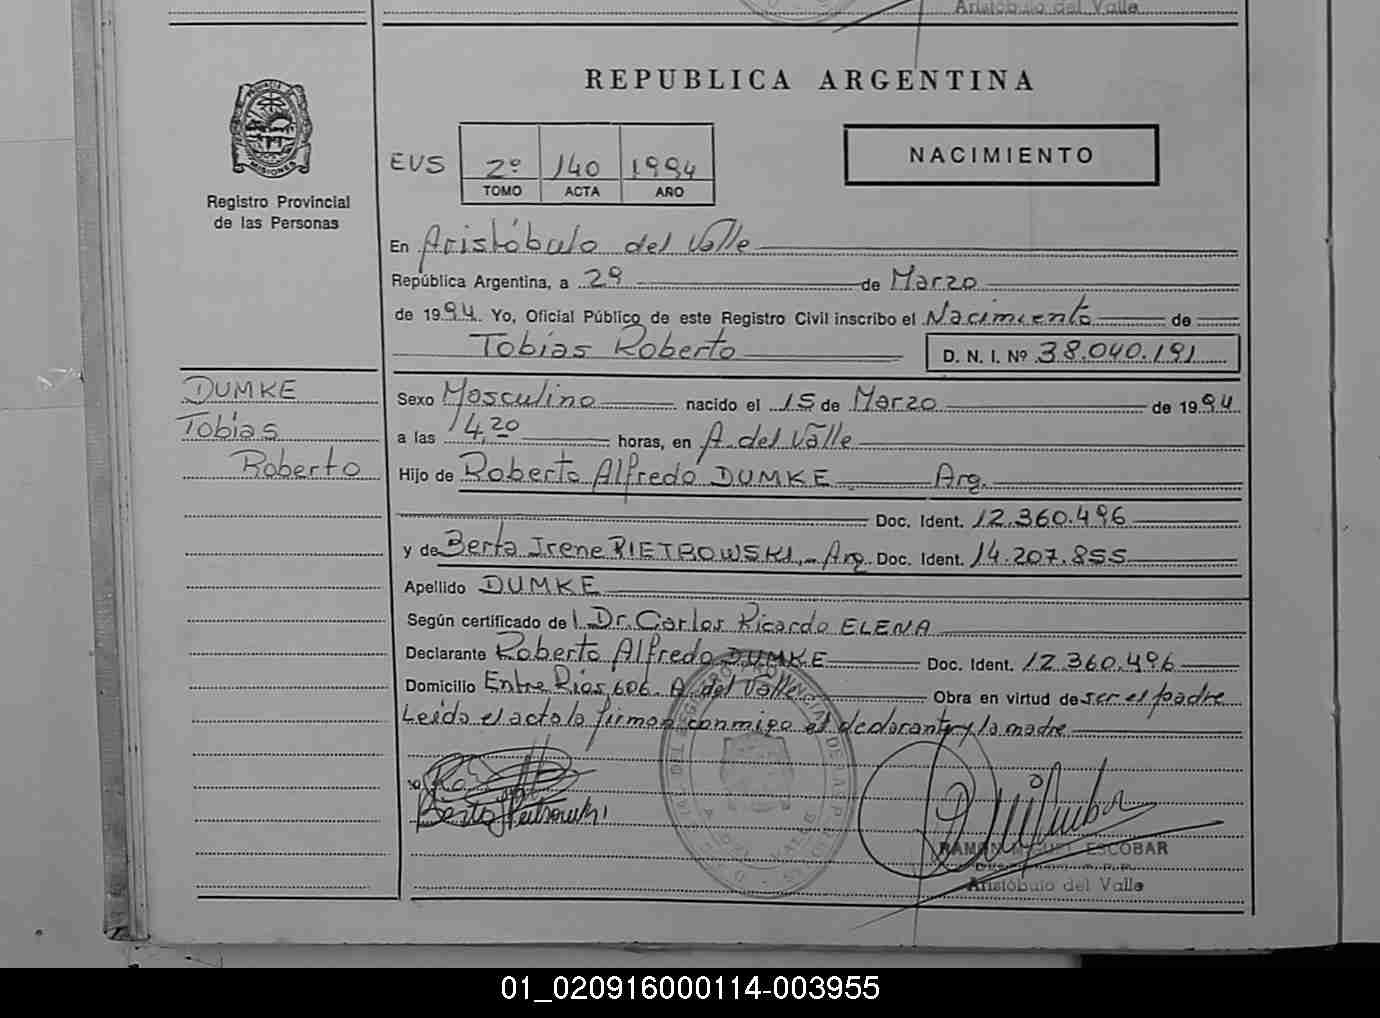 Aristóbulo del Valle
REPUBLICA ARGENTINA
PROVINCIA DE MISIONES
Registro Provincial
de las Personas
EVS 2º 140 1994
TOMO ACTA AÑO
NACIMIENTO
En Aristóbulo del Valle
República Argentina, a 29 de Marzo
de 1994. Yo, Oficial Público de este Registro Civil inscribo el Nacimiento de
Tobias Roberto D. N. I. Nº 38.040.191
DUMKE
Tobias
Roberto
Sexo Masculino nacido el 15 de Marzo de 1994
a las 14,20 horas, en A. del Valle
Hijo de Roberto Alfredo DUMKE Arg.
Doc. Ident. 12.360.496
y de Berta Irene PIETROWSKI,- Arg. Doc. Ident. 14.207.855
Apellido DUMKE
Según certificado de Dr. Carlos Ricardo ELENA
Declarante Roberto Alfredo DUMKE Doc. Ident. 12.360.496
Domicilio Entre Rios 606. A. del Valle Obra en virtud de ser el padre
Leida el acta la firman conmigo el declarante y la madre
RAMON MIGUEL ESCOBAR
Aristóbulo del Valle
01_020916000114-003955